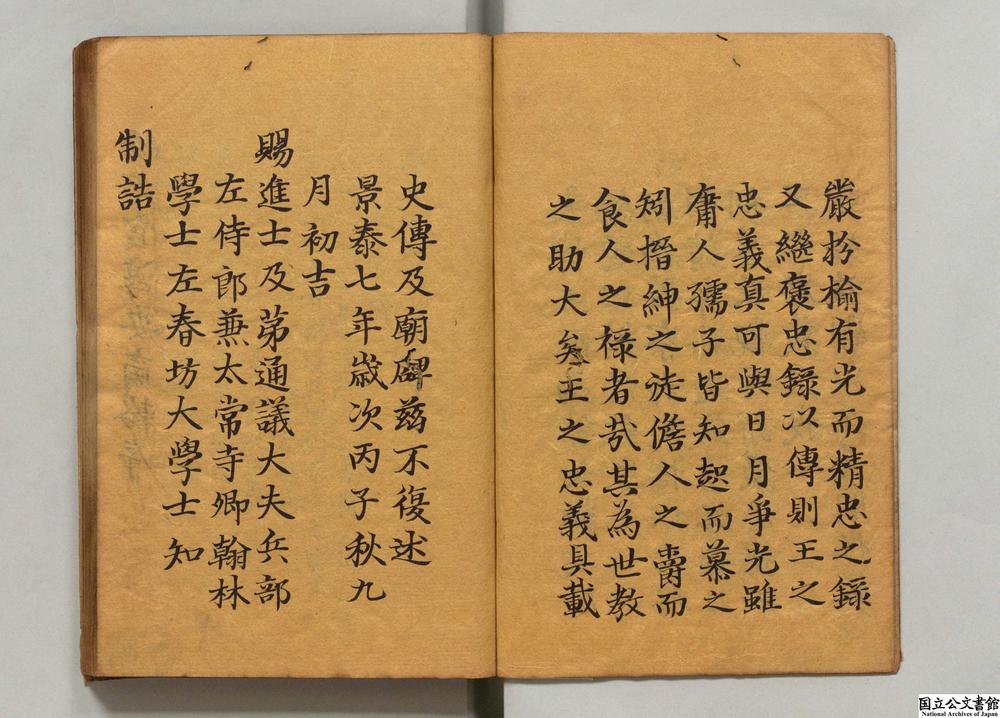 嚴於榆有光而精忠之録
又繼褒忠錄以傳則王之
忠義真可與日月爭光雖
庸人孺子皆知起而慕之
矧搢紳之徒儋人之爵而
食人之祿者㢤其為世教
之助大矣王之忠義具載
史傳及廟碑茲不復述
景泰七年歲次丙子秋九
月初吉
賜進士及苐通議大夫兵部
左侍郎蕪太常寺卿翰林
學士左春坊大學士知
制誥
国立公文書館
National Archives of Japan